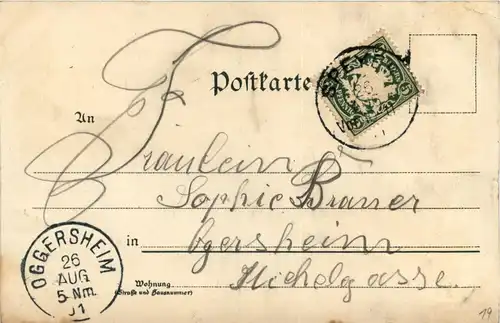 Postkarte
SPEYER
5
An
Fräulein
Sophie Braner
in
Ogersheim
Wohnung
(Straße und Hausnummer)
Michelgasse.
OGGERSHEIM
26
AUG
5 Nm.
01
19